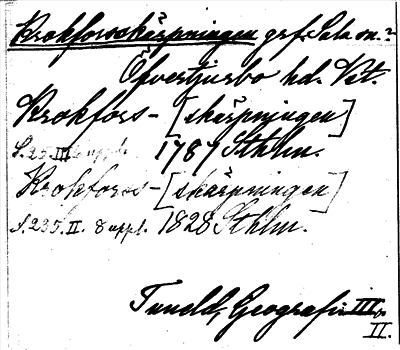 Krokforsskärpningen grf. Sala sn.?
Öfvertjurbo hd. Vst.
Krokfors- [skärpningen]
S. 25. III uppl. 1787 Sthlm.
Krokforss- [skärpningen]
S. 235. II. 8 uppl. 1828 Sthlm.
Tuneld, Geografi III.
II.